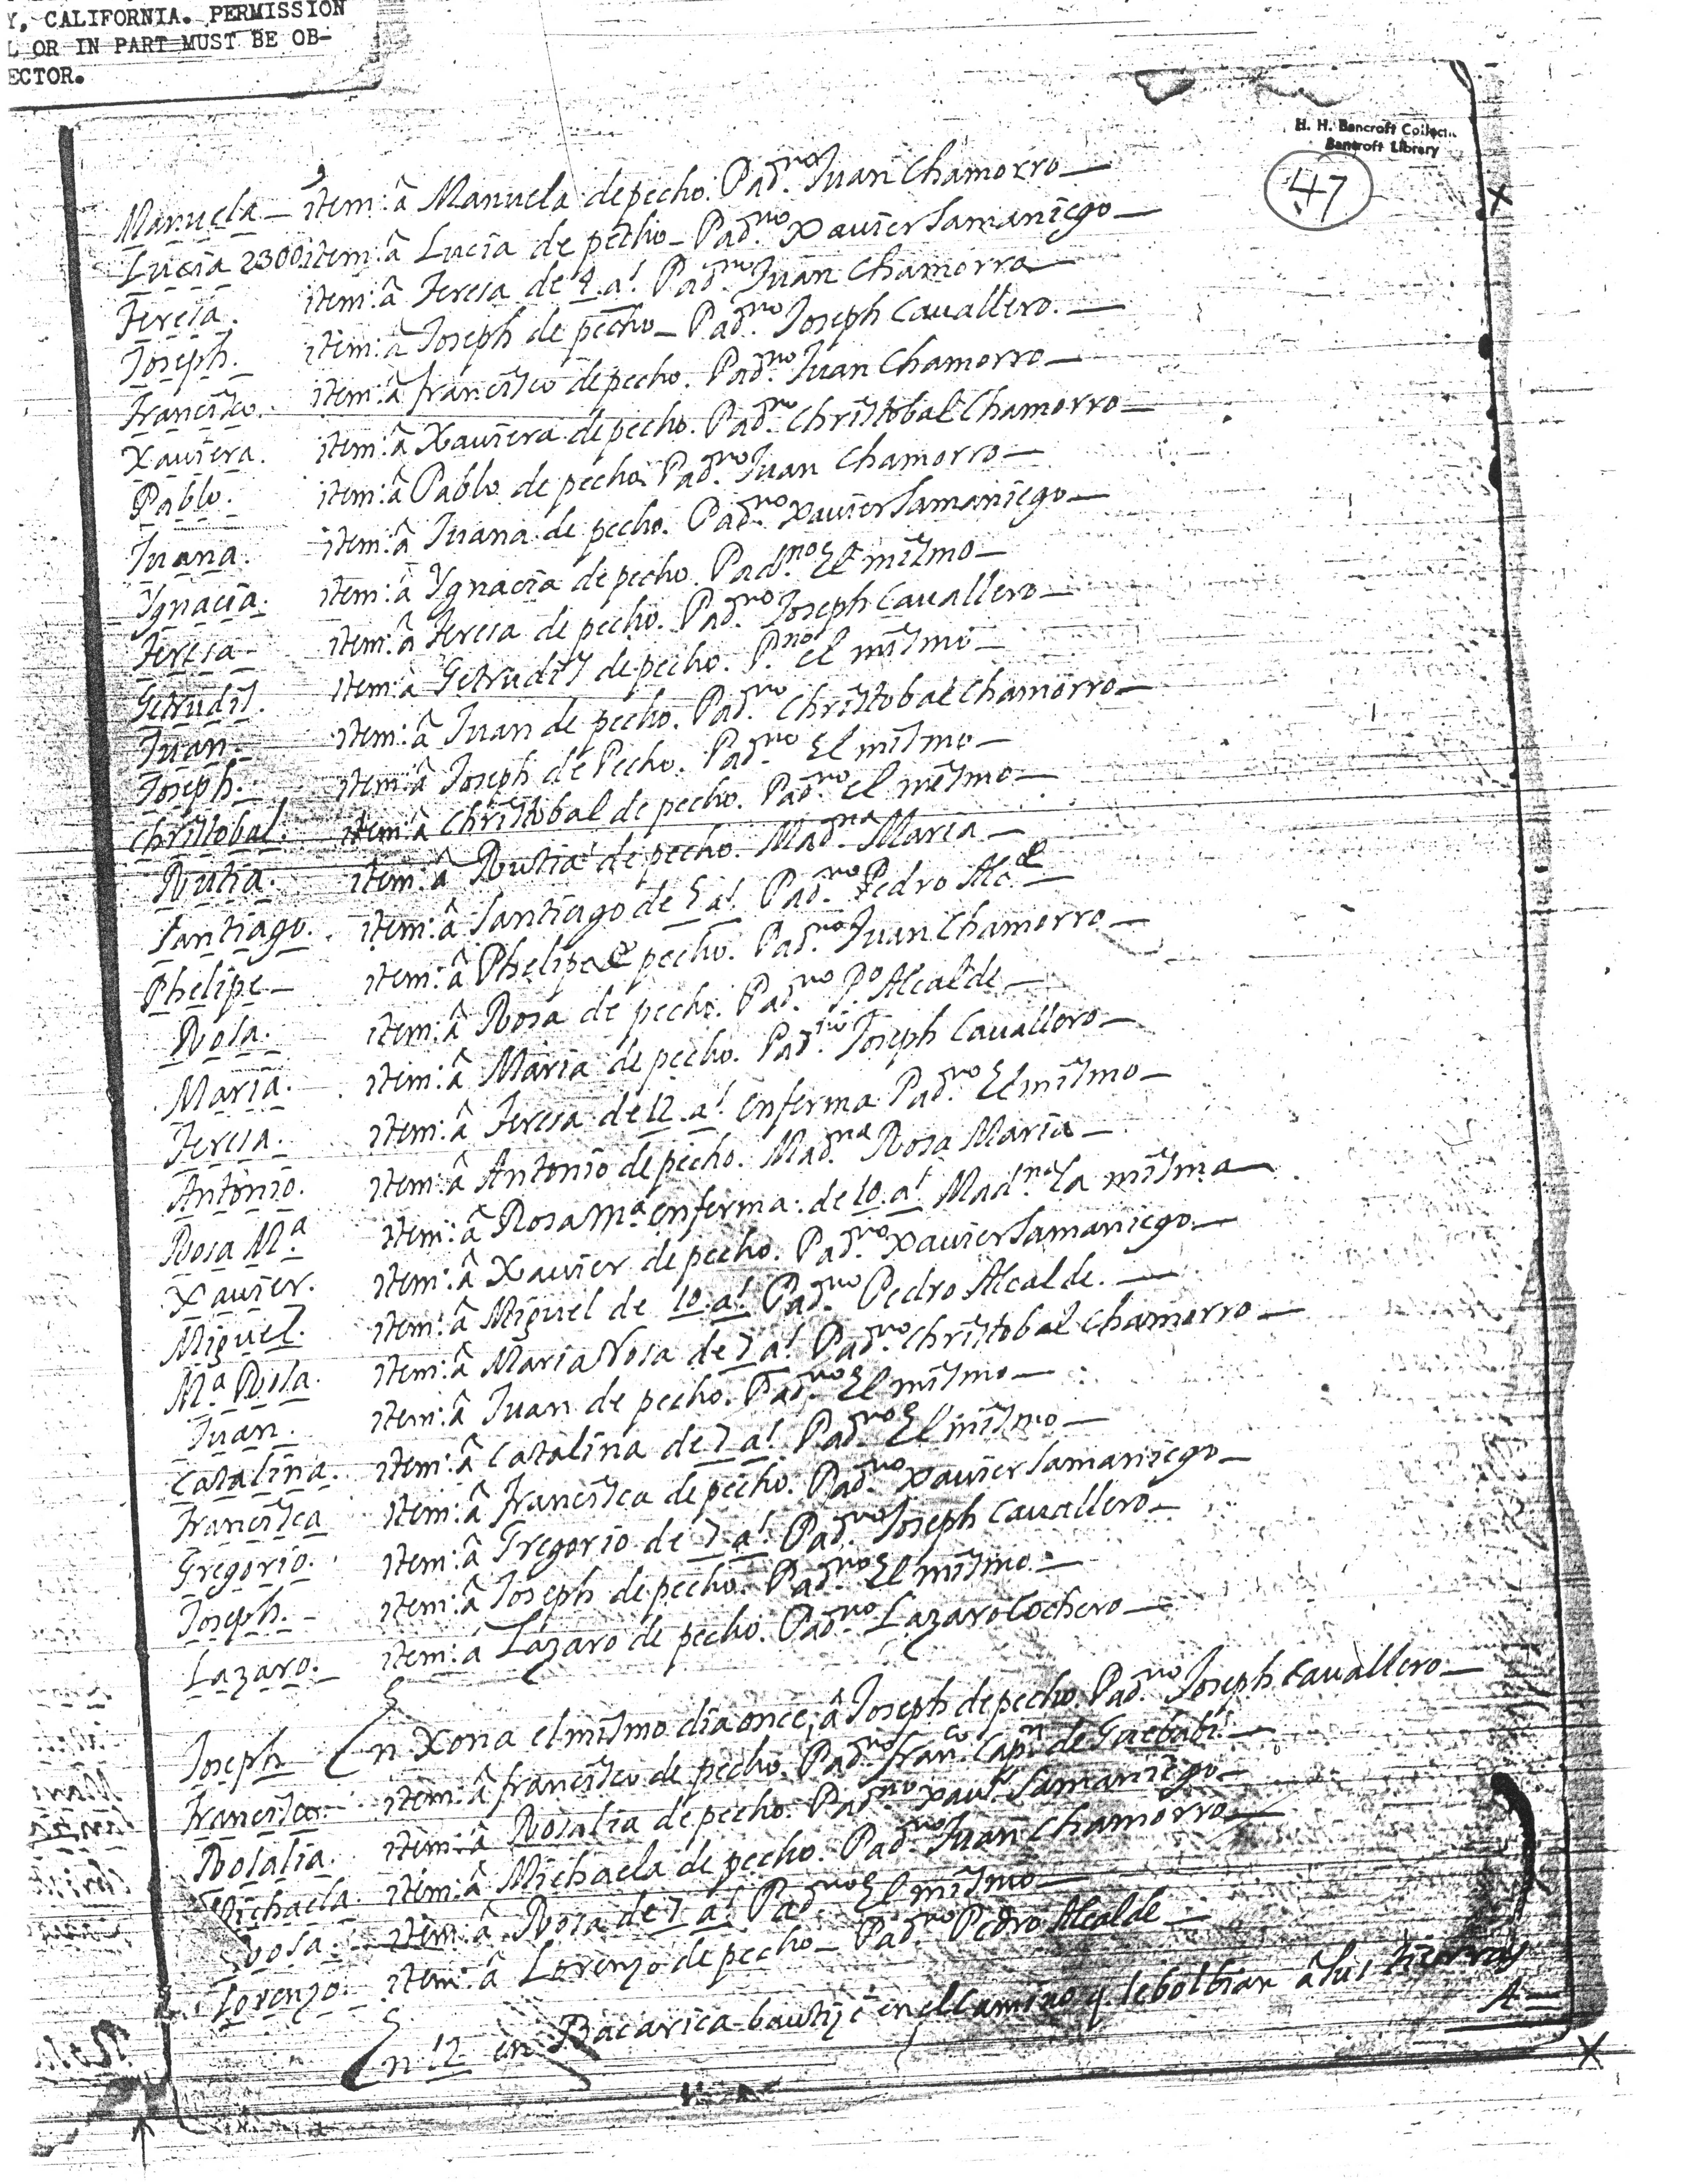 Y, CALIFORNIA. PERMISSION
L OR IN PART MUST BE OB-
ECTOR.
H. H. Bancroft Collecti..
Bancroft Library
47
Manuela item: â Manuela de pecho. Padno. Juan Chamorro
Lucia 2300 item: â Lucia de pecho Padno. Xavier Samaniego
Teresa. item: â Teresa de 4 as. Padno. Juan Chamorra
Joseph. item: â Joseph de pecho Padno. Joseph Cavallero.
Francisco. item: â francisco de pecho. Padno. Juan Chamorro
Xaviera. item: â Xaviera de pecho. Padno. Christobal Chamorro
Pablo. item: â Pablo de pecho. Padno. Juan Chamorro
Juana. item: â Juana de pecho. Padno. Xavier Samaniego
Ygnacia. item: â Ygnacia de pecho. Padno. El mismo
Teresa item: â Teresa de pecho. Padno. Joseph Cavallero
Getrudis. item: â Getrudis de pecho. Pno. el mismo
Juan. item: â Juan de pecho. Padno. Christobal Chamorro
Joseph. item: â Joseph de Pecho. Padno. El mismo
Christobal. item: â Christobal de pecho. Padno. el mesmo
Rutia. item: â Rutia de pecho. Madna. Maria
Santiago. item: â Santiago de 5 as. Padno. Pedro Alc.de
Phelipe item: â Phelipe de pecho. Padno. Juan Chamorro
Rosa. item: â Rosa de pecho. Padno. Po. Alcalde
Maria. item: â Maria de pecho. Padno. Joseph Cavallero
Teresa. item: â Teresa de 12 as. enferma Padno. El mismo
Antonio. item: â Antonio de pecho. Madna. Rosa Maria
Rosa Ma. item: â Rosa Ma. enferma: de 10 as. Madna. la misma
Xavier. item: â Xavier de pecho. Padno. Xavier Samaniego.
Miguel. item: â Miguel de 10 as. Padno. Pedro Alcalde.
Ma. Rosa. item: â Maria Rosa de 7 as. Padno. Christobal Chamorro
Juan. item: â Juan de pecho. Padno. El mismo
Catalina. item: â Catalina de 7 as. Padno. El mismo
Francisca item: â Francisca de pecho. Padno. Xavier Samaniego
Gregorio. item: â Gregorio de 7 as. Padno. Joseph Cavallero
Joseph. item: â Joseph de pecho. Padno. El mismo.
Lazaro. item: á Lázaro de pecho. Padno. Lazaro Cochero
Joseph En Xona el mismo dia once, â Joseph de pecho Padno. Joseph Cavallero
Francisco. item: â francisco de pecho. Padno. franco. Capn. de Guebabi
Rosalia. item: â Rosalia de pecho. Padno. Xavr. Samaniego
Michaela. item: â Michaela de pecho. Padno. Juan Chamorro
Rosa. item: â Rosa de 7 as. Padno. El mismo
Lorenzo. item: â Lorenzo de pecho Padno. Pedro Alcalde
En 12 en Bacarica bautizé en el camino q. se bolbian â sus tierras
A